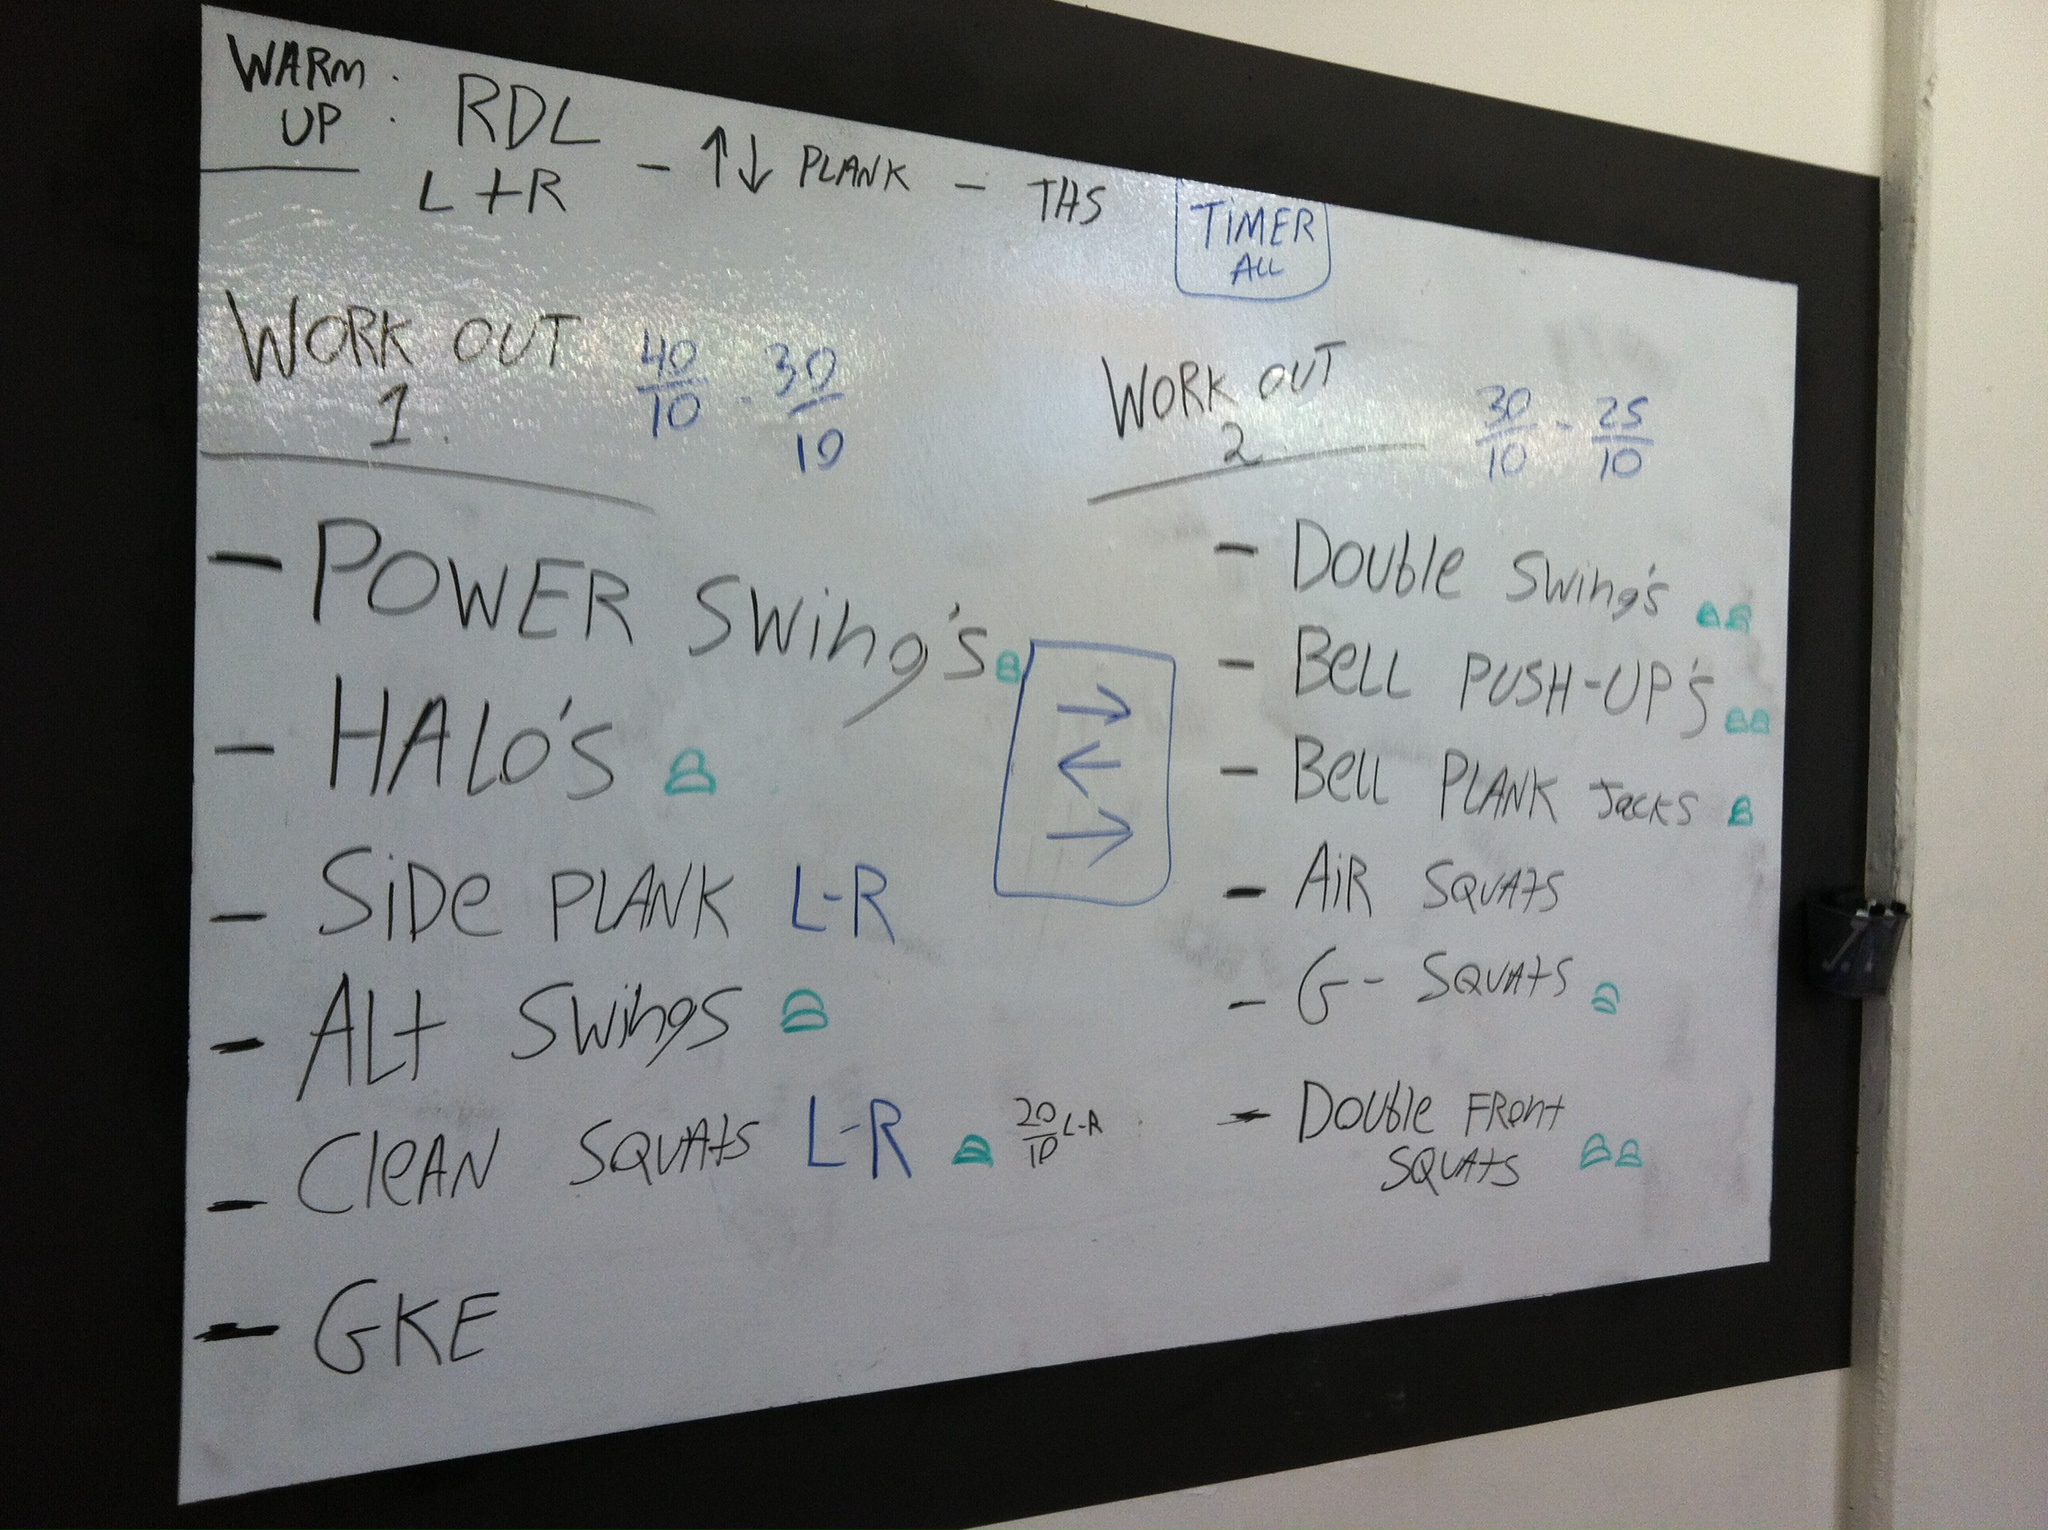 WARM UP : RDL L+R - ↑↓ PLANK - THS
TIMER
ALL
WORK OUT 1. 40/10 - 30/10
- POWER SWing's
- HALo'S
- SiDe PLANK L-R
- ALt SWings
- CleAN SQUAtS L-R 20/10 L-R
- GKE
→
←
→
WORK OUT 2. 30/10 - 25/10
- Double Swing's
- BeLL PUSH-UP's
- Bell PLANK JACKS
- AiR SQUAtS
- G- SQUAtS
- Double FRont
SQUAtS